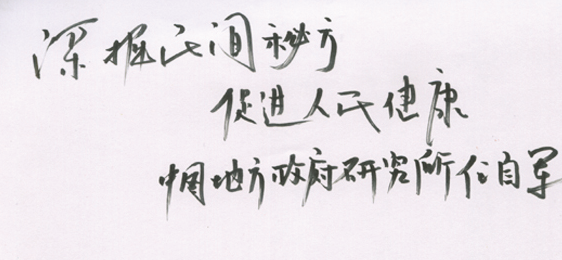 深掘民间秘方
促进人民健康
中国地方政府研究所任自军